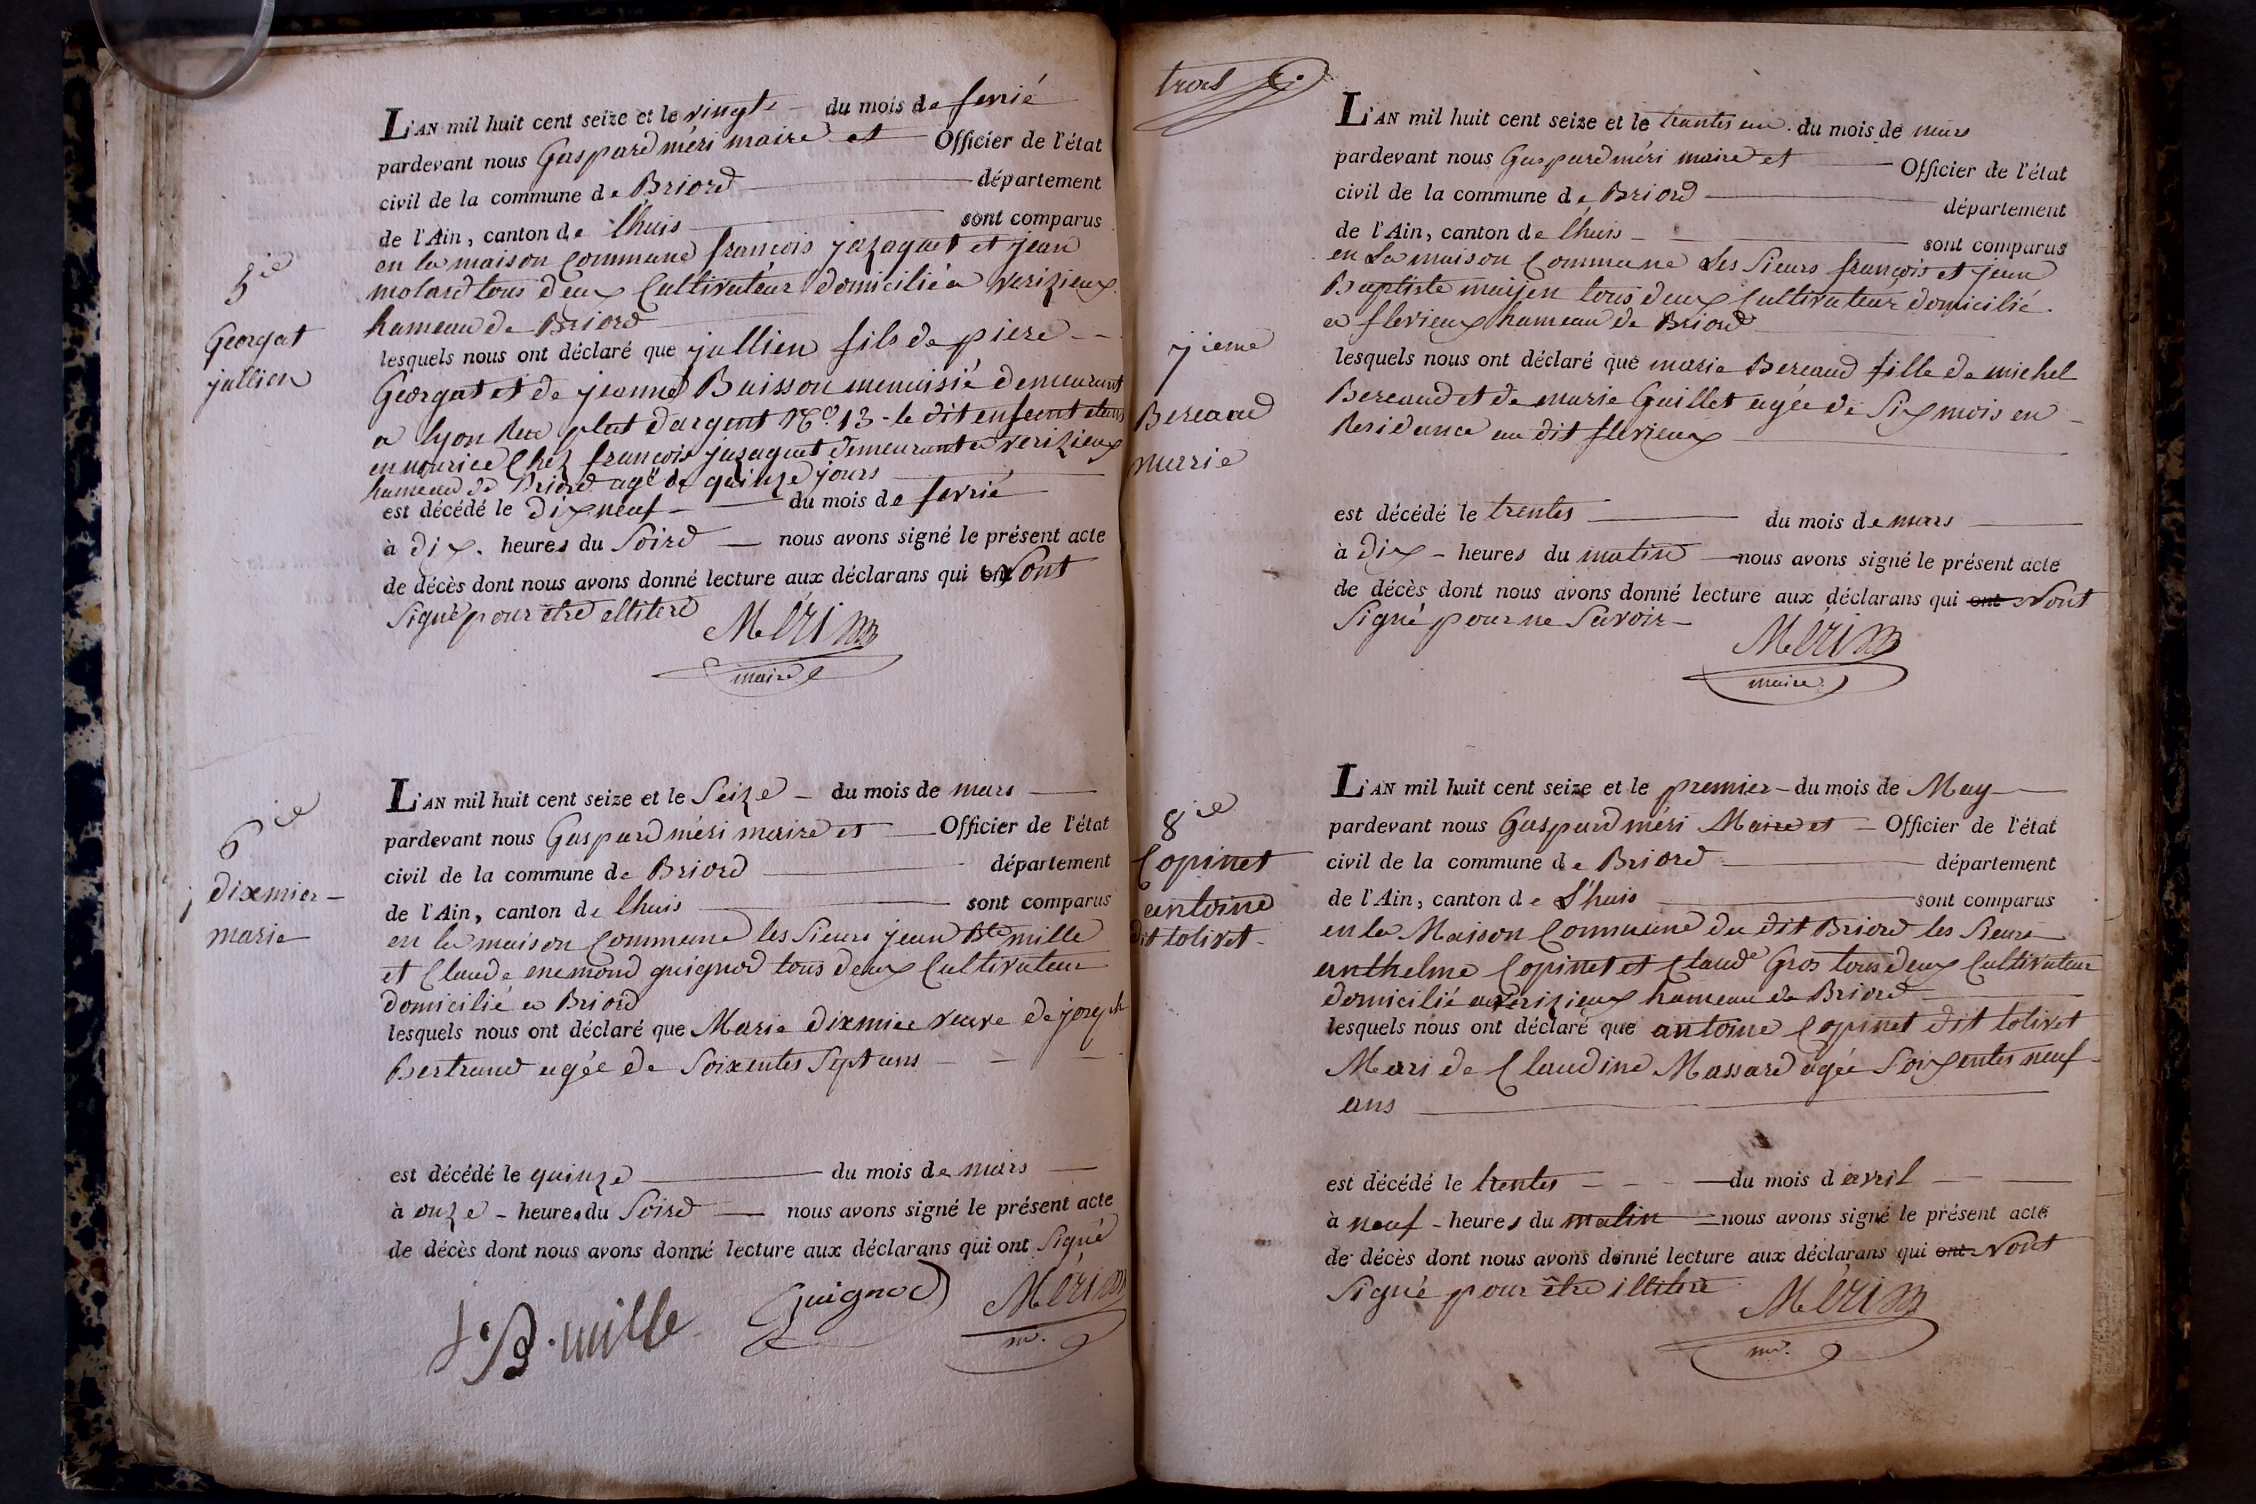 L'AN mil huit cent seize et le vingt du mois de fevrié
pardevant nous Gaspard méri maire et Officier de l'état
civil de la commune de Briord département
de l'Ain, canton de lhuis sont comparus
en la maison Commune françois jazaquet et jean
molard tous deux Cultivateur domicilié a verizieux
hameau de Briord
5ie
Georgat
jullien
lesquels nous ont déclaré que jullien fils de piere
Georgat et de jeanne Buisson menuisié demeurant
a lyon Rue plat d'argent No 13 - le dit enfent etant
en nourice Chez francois jazaquet demeurant a verizieux
hameau de Briord agé de quinze jours
est décédé le dix neuf du mois de fevrié
à dix heures du Soird nous avons signé le présent acte
de décès dont nous avons donné lecture aux déclarans qui ont Nont
Signé pour être ellitere
Méri
maire
L'AN mil huit cent seize et le Seize du mois de mars
pardevant nous Gaspard méri maire et Officier de l'état
civil de la commune de Briord département
de l'Ain, canton de lhuis sont comparus
en la maison Commune les Sieurs jean Bte mille
et Claude enemond guignod tous deux Cultivateur
domicilié a Briord
6ie
dixmier
marie
lesquels nous ont déclaré que Marie dixmier veuve de joseph
Bertrand agée de Soixentes Sept ans
est décédé le quinze du mois de mars
à onze heures du Soird nous avons signé le présent acte
de décès dont nous avons donné lecture aux déclarans qui ont Signé
J B. mille Guignod Méri
mre.
trois
L'AN mil huit cent seize et le trentes un du mois de mars
pardevant nous Gaspard méri maire et Officier de l'état
civil de la commune de Briord département
de l'Ain, canton de lhuis sont comparus
en La maison Commune Les Sieurs françois et jean
Baptiste marjen tous deux Cultivateur domicilié
a flevieux hameau de Briord
7ieme
Bereaud
marie
lesquels nous ont déclaré que marie Bereaud fille de michel
Bereaud et de marie Guillet agée de Six mois en
Residance au dit flevieux
est décédé le trentes du mois de mars
à dix heures du matin nous avons signé le présent acte
de décès dont nous avons donné lecture aux déclarans qui ont Nont
Signé pour ne Savoir
Méri
maire
L'AN mil huit cent seize et le premier du mois de May
pardevant nous Gaspard méri Maire et Officier de l'état
civil de la commune de Briord département
de l'Ain, canton de L'huis sont comparus
en la Maison Commune du dit Briord les Sieurs
anthelme Copinet et Claude Gros tous deux Cultivateur
domicilié a Verizieux hameau de Briord
8ie
Copinet
antoine
dit tolivet
lesquels nous ont déclaré que antoine Copinet dit tolivet
Mari de Claudine Massard agée Soixentes neuf
ans
est décédé le trentes du mois d avril
à neuf heures du matin nous avons signé le présent acte
de décès dont nous avons donné lecture aux déclarans qui ont Nont
Signé pour être illitere
Méri
mre.